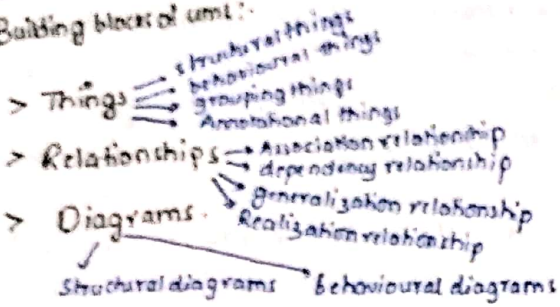 Building blocks of ums:-
> Things
structural things
behavioural things
grouping things
Annotational things
> Relationships
Association relationship
dependency relationship
generalization relationship
Realization relationship
> Diagrams.
Structural diagrams
behavioural diagrams